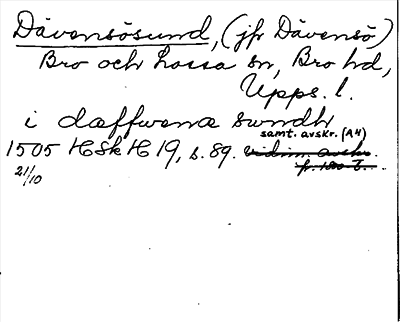 Dävensösund, (jfr Dävensö)
Bro och Lossa sn, Bro hd,
Upps. l.
i dæffwenæ swndh
samt. avskr. (A4)
1505 HSkH 19, s. 89. vidim. avskr.
21/10